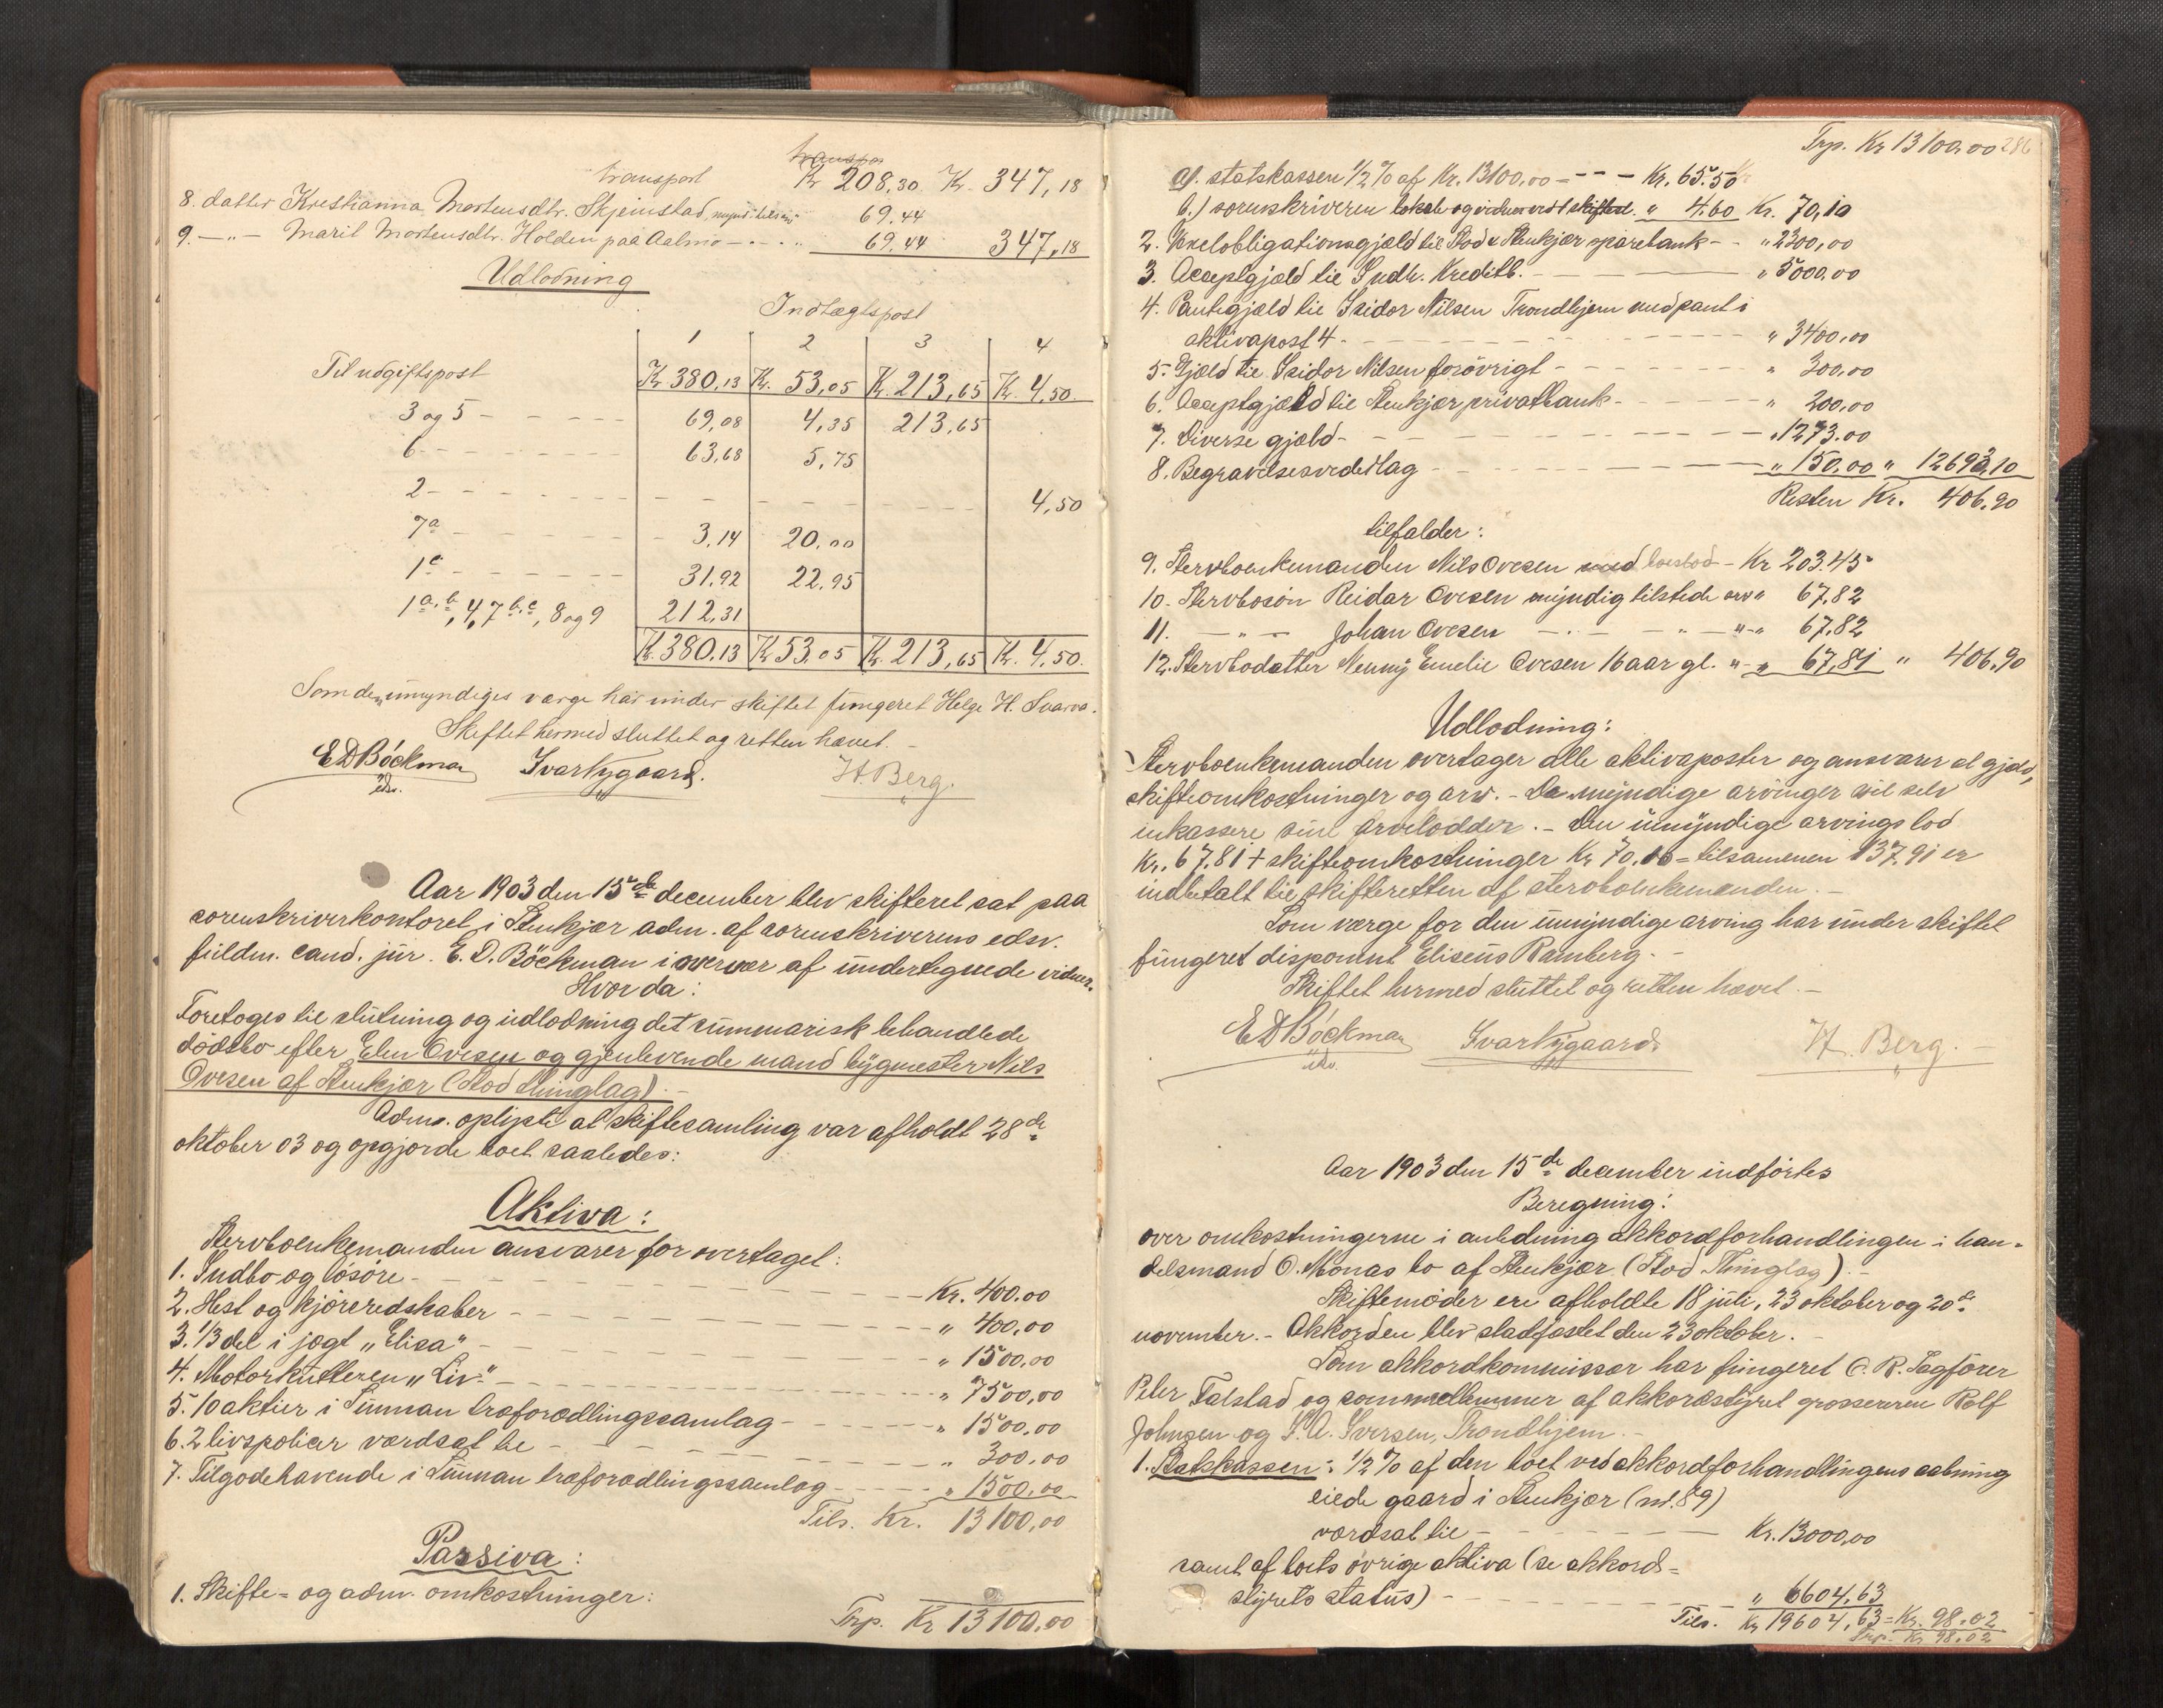 transport Kr 208,30 Kr. 347,18
8. datter Kristianna Mortensdtr. Skjeinstad, 69.44
9. —„— Marit Mortensdtr. Holden paa Aalmo —„— 69.44 347,18
Udlodning
Indtægtspost
1 2 3 4
Til udgiftspost Kr 380,13 Kr. 53,05 Kr. 213,65 Kr. 4,50
3 og 5 - - - - 69,08 4,35 213,65
6 - - - - 63,68 5,75
2 - - - - 4,50
7a - - - - 3,14 20,00
1c - - - - 31,92 22,95
1a, b, 4, 7 b, c, 8 og 9 212,31
Kr. 380,13 Kr 53,05 Kr. 213,65 Kr. 4,50.
Som de umyndiges værge har under skiftet fungeret Helge H. Svarva.
Skiftet hermed sluttet og retten hævet. -
E D Böckman Ivar Nygaard. H. Berg.
eds.
Aar 1903 den 15de december blev skifteret sat paa
sorenskriverkontoret i Stenkjær adm. af sorenskriverens edsv.
fuldm. cand. jur. E. D. Böckman i overvær af undertegnede vidner.
Hvor da:
Foretoges til slutning og udlodning det summarisk behandlede
dødsbo efter Elen Ovesen og gjenlevende mand bygmester Nils
Ovesen af Stenkjær (Stod thinglag). -
Adm. oplyste at skiftesamling var afholdt 28de
oktober 03 og opgjorde boet saaledes:
Aktiva:
Stervboenkemanden ansvarer for overtaget:
1. Indbo og løsøre - - - Kr. 400.00
2. Hest og kjøreredskaber - - - „ 400,00
3. 1/3 del i jagt „Elisa“ - - - „ 1500,00
4. Motorkutteren „Liv“ - - - „ 7500,00
5. 10 aktier i Sunnan træforædlingssamlag - - - „ 1500,00
6. 2 livspolicer værdsat til - - - „ 300,00
7. Tilgodehavende i Sunnan træforædlingssamlag - - - „ 1500,00
Tils. Kr. 13100,00
Passiva:
1. Skifte- og adm. omkostninger:
Trp. Kr 13100,00
Trp. Kr 13100,00 286
a). statskassen 1/2 % af Kr. 13100,00 = - - - Kr. 65.50
b.) sorenskriveren „ 4.60 Kr. 70,10
2. Vexelobligationsgjæld til Stod & Stenkjær sparebank - - „ 2300,00
3. Acceptgjæld til Indh. Kreditb. - - - „ 5000.00
4. Pantegjæld til Isidor Nilsen Trondhjem med pant i
aktivapost 4 - - - „ 3400,00
5. Gjæld til Isidor Nilsen forøvrigt - - - „ 300,00
6. Acceptgjæld til Stenkjær privatbank - - - „ 200,00
7. Diverse gjæld - - - „ 1273.00
8. Begravelsesvederlag - - - „ 150,00 „ 12693,10
Resten Kr. 406,90
tilfalder:
9. Stervboenkemanden Nils Ovesen boeslod - Kr 203.45
10. Stervbosøn Reidar Ovesen myndig tilstede arv „ 67,82
11. —„— Johan Ovesen —„— „ 67,82
12. Stervbodatter Nenny Emelie Ovesen 16 aar gl. „-„ 67,81 „ 406,90
Udlodning:
Stervboenkemanden overtager alle aktivaposter og ansvarer al gjæld,
skifteomkostninger og arv. - De myndige arvinger vil selv
inkassere sine arvelodder. - Den umyndige arvings lod
Kr. 67,81 + skifteomkostninger Kr 70,10 = tilsammen 137,91 er
indbetalt til skifteretten af stervboenkemanden. -
Som værge for den umyndige arving har under skiftet
fungeret disponent Eliseus Ramberg. -
Skiftet hermed sluttet og retten hævet. -
E D Böckman Ivar Nygaard. H. Berg.
eds.
Aar 1903 den 15de december indførtes
Beregning:
over omkostningerne i anledning akkordforhandlingen i han-
delsmand O. Monas bo af Stenkjær (Stod Thinglag). -
Skiftemøder ere afholdte 18 juli, 23 oktober og 20de
november. - Akkorden blev stadfæstet den 23 oktober. -
Som akkordkommissær har fungeret O. R. Sagfører
Peter Falstad og som medlemmer af akkordstyret grossererne Rolf
Johnsen og S. A. Iversen, Trondhjem. -
1. Statskassen: 1/2 % af den boet ved akkordforhandlingens aabning
eiede gaard i Stenkjær (ml. 89)
værdsat til - - - Kr. 13000,00
samt af boets øvrige aktiva (se akkord-
styrets status) - - - „ 6604,63
Tils. Kr 19604,63 = Kr. 98,02
Trp. Kr 98,02